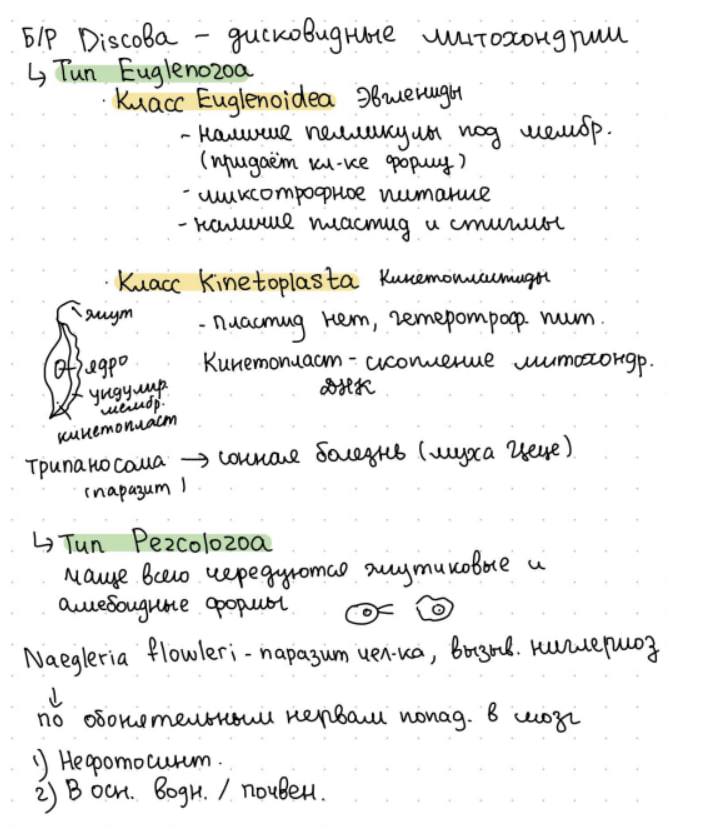 Б/Р Discoba – дисковидные митохондрии
↳ Тип Euglenozoa
· Класс Euglenoidea Эвглениды
- наличие пелликулы под мембр.
(придаёт кл-ке форму)
- миксотрофное питание
- наличие пластид и стигмы
· Класс Kinetoplasta Кинетопластиды
жгут
- пластид нет, гетеротроф. пит.
ядро
Кинетопласт - скопление митохондр.
ДНК
ундулир.
мембр.
кинетопласт
Трипаносома → сонная болезнь (муха Цеце)
(паразит)
↳ Тип Percolozoa
Чаще всего чередуются жгутиковые и
амебоидные формы
Naegleria flowleri - паразит чел-ка, вызыв. ниглериоз
↓
по обонятельным нервам попад. в мозг
1) Нефотосинт.
2) В осн. водн. / почвен.